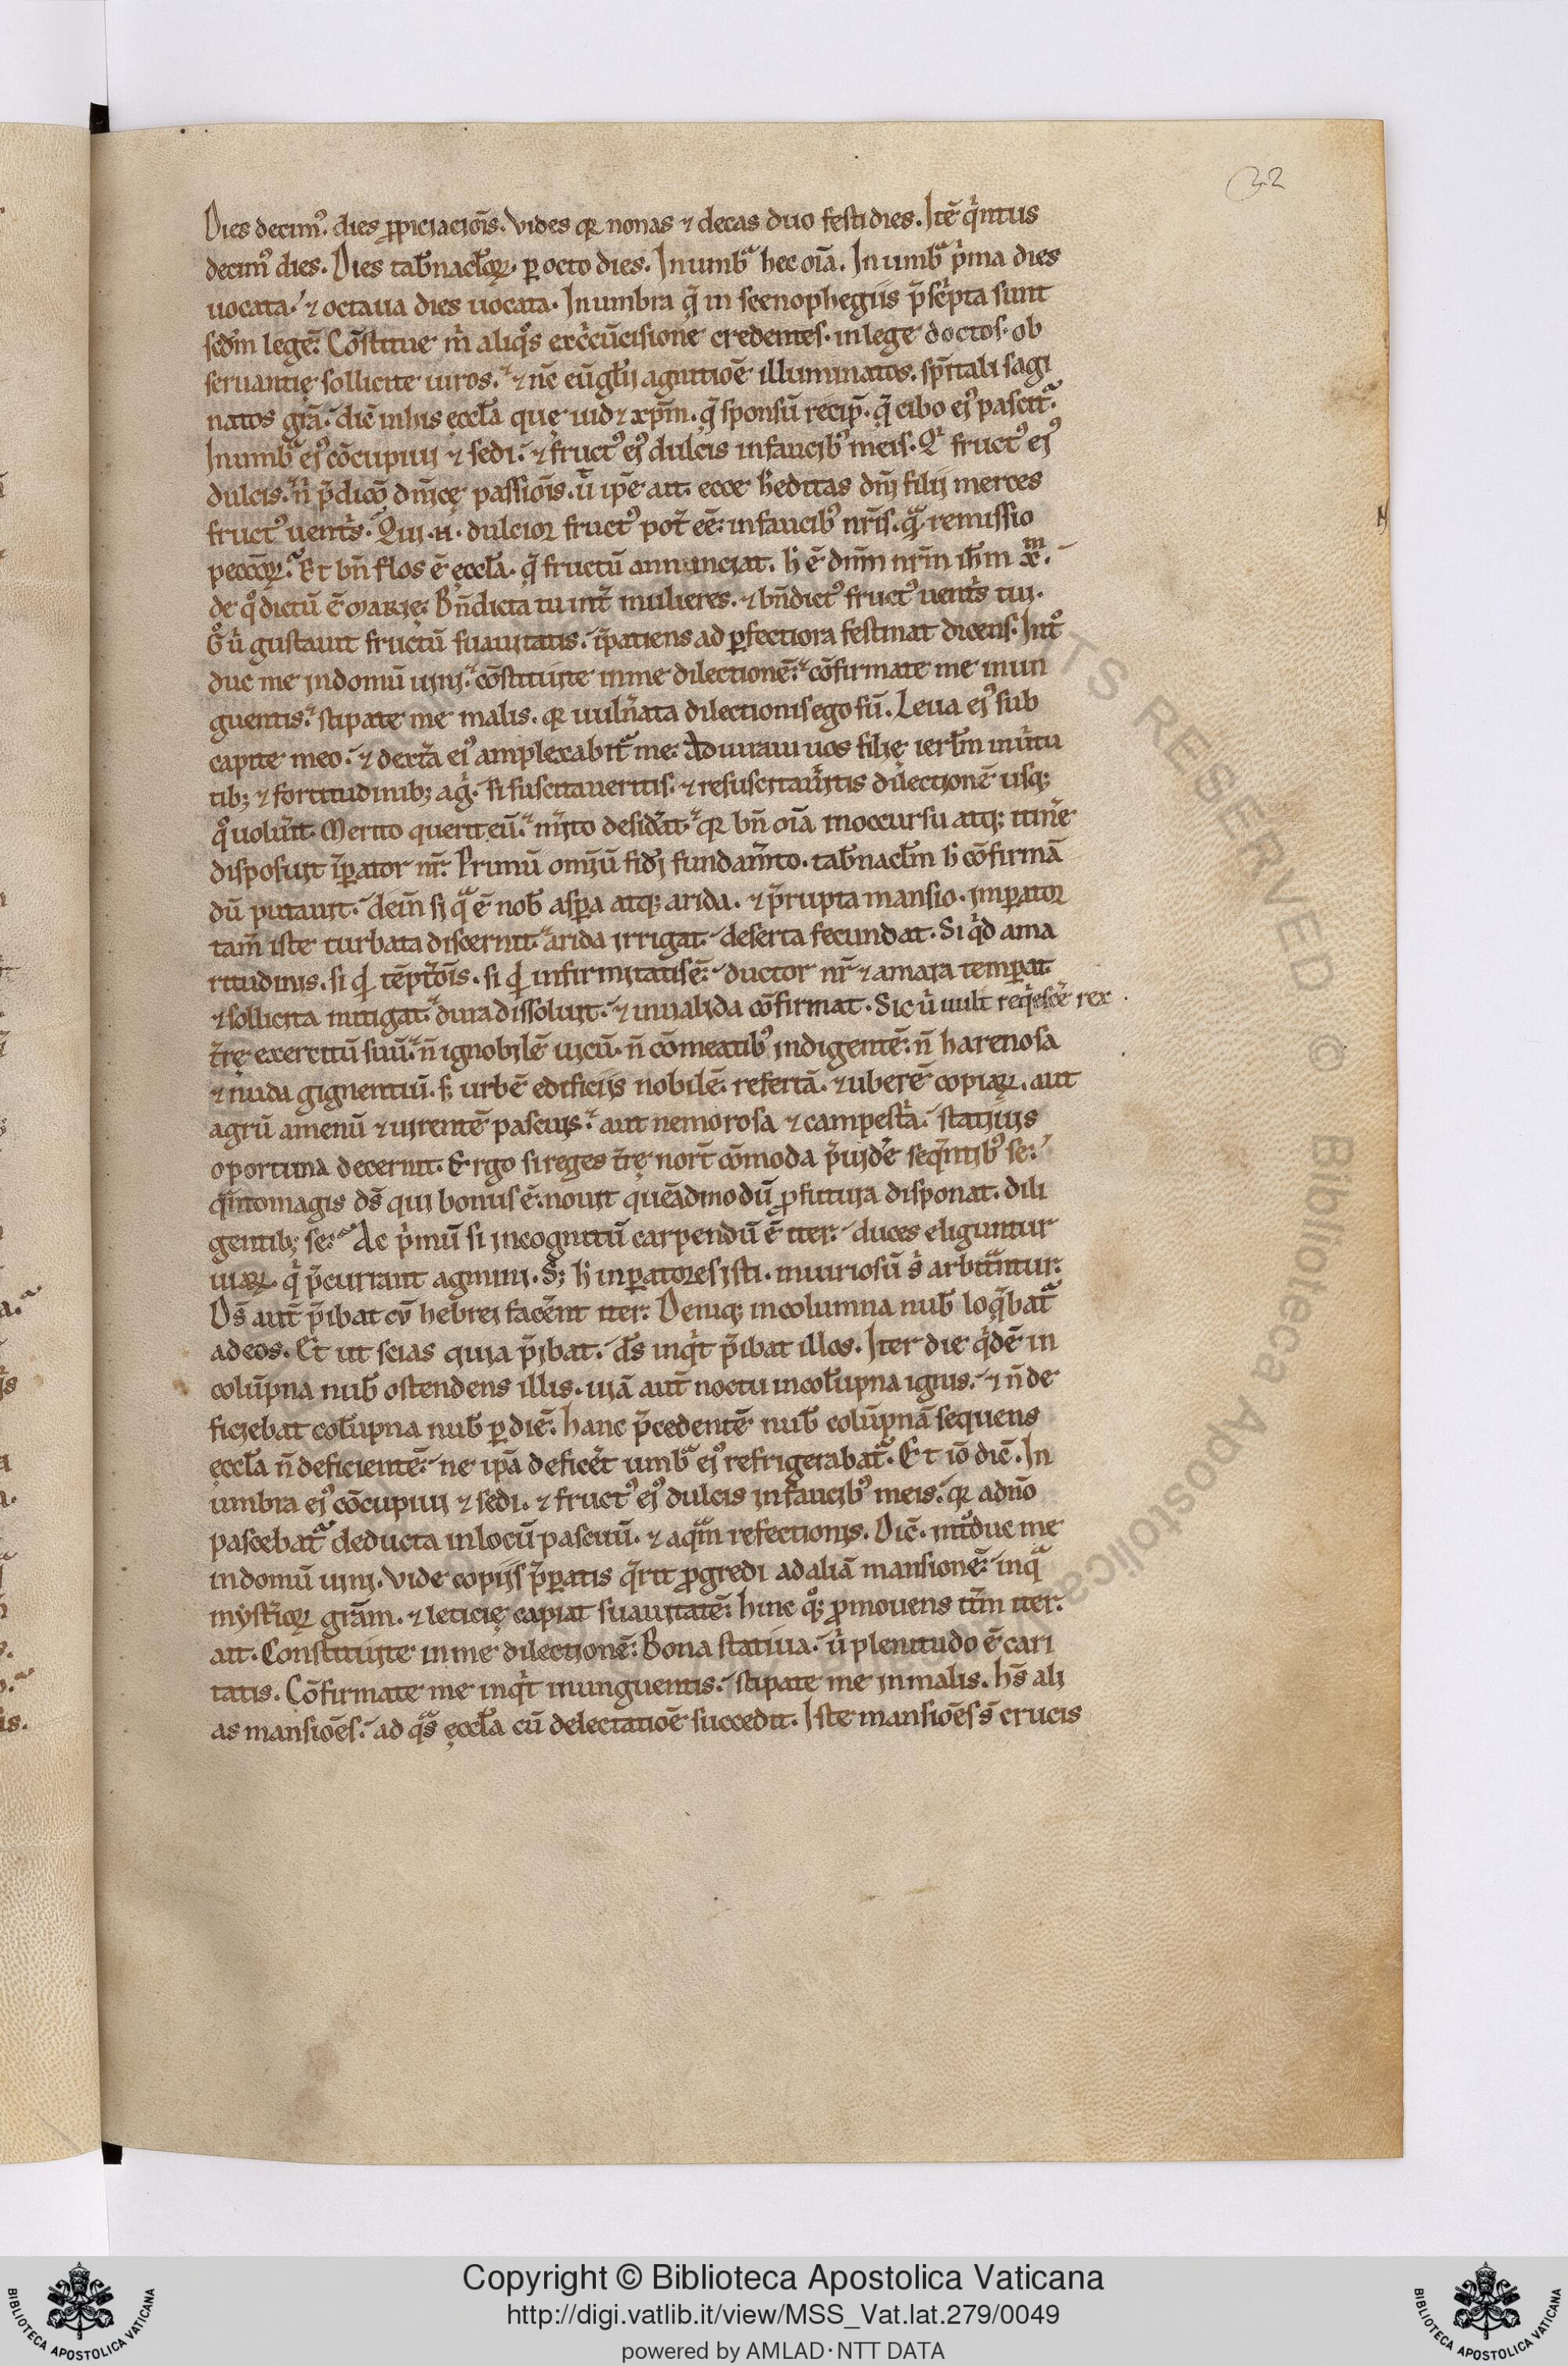 32
Dies decim᷒. dies ꝓpiciacioīs. Vides qꝛ nonas ⁊ decas duo festi dies. Itē qⁱntus
decim᷒ dies. Dies tab̄nacl̄oꝝ. ꝑ octo dies. In umbᵃ hec oīa. In umbᵃ pⁱma dies
uocata. ⁊ octaua dies uocata. In umbra q̄ in scenophegiis p̄scⁱpta sunt
scd̄m legē. Cōstitue mⁱ aliqᵒs ex cⁱcūcisione credentes. in lege doctos. ob
seruantię sollicite uiros. ⁊ nc̄ eūgl̄ij agnitioē illuminatos. sp̄itali sagi
natos grā. dic̄ in his ęccl̄a quę uid⁊ xp̄m. q̄ sponsū recip̄. q̄ cibo ei᷒ pascit᷑.
In umbᵃ ei᷒ cōcupiui ⁊ sedi. ⁊ fruct᷒ ei᷒ dulcis in faucib᷒ meis. Qꝛ fruct᷒ ei᷒
dulcis. nⁱ p̄dicō dn̄icę passioīs. uͭ ip̄e ait. ecce h̄editas dn̄i filij merces
fruct᷒ uentⁱs. Qui .n. dulcior fruct᷒ pot̄ eē. in faucib᷒ nr̄is. qᵃ remissio
peccōꝝ. Et bn̄ flos ē ęccl̄a. q̄ fructū annunciat. h̄ ē dn̄m nr̄m ih̄m xᵐ.
de qᵒ dictū ē Marię. Bn̄dicta tu int̄ mulieres. ⁊ bn̄dict᷒ fruct᷒ uentⁱs tui.
Gᵒ uͥ gustauit fructū suauitatis. īpatiens ad ꝑfectiora festinat dicens. Intᵒ
duc me in domū uini. cōstituite in me dilectionē. cōfirmate me in un
guentis. stipate me malis. qꝛ uuln̄ata dilectionis ego sū. Leua ei᷒ sub
capite meo. ⁊ dext̄a ei᷒ amplexabit᷑ me. Adiuraui uos filię ierl̄m in uⁱtu
tib; ⁊ fortitudinib; agⁱ. si suscitaueritis. ⁊ resuscitaūitis dilectionē usq;
qᵒ uolūit. Merito querit eū. mīto desid̄at. qꝛ bn̄ oīa in occursu atq; itin̄e
disposuit īꝑator nr̄. Primū omīū fidi fundam̄to. tab̄nacl̄m h̄ cōfirmā
dū putauit. dein̄ si qᵃ ē nob̄ asꝑa atq; arida. ⁊ p̄rupta mansio. imꝑator
tam̄ iste turbata discernit. arida irrigat. deserta fecundat. Si qⁱd ama
ritudinis. si qⁱ tēpt̄oīs. si qⁱ infirmitatis ē. ductor nr̄ ⁊ amara temꝑat.
⁊ sollicita mitigat. dura dissoluit. ⁊ inualida cōfirmat. Sic uͥ uult reqⁱesc̄e rex
t̄rę exercitū suū. n̄ ignobilē uicū. n̄ cōmeatib᷒ indigentē. n̄ harenosa
⁊ nuda gignentiū. s; urbē edificiis nobilē. refertā. ⁊ uberē copiaꝝ. aut
agrū amenū ⁊ uirentē pascuis. aut nemorosa ⁊ campestⁱa. statiuis
oportuna decernit. Ergo si reges t̄rę nort̄ cōmoda p̄uid̄e seq̄ntib᷒ se.
qᵃnto magis ds̄ qui bonus ē. nouit quēadmodū ꝓfutura disponat. dili
gentib; se. Ac pⁱmū si incognitū carpendū ē iter. duces eliguntur
uiaꝝ. qⁱ p̄currant agmini. S; hⁱ inꝑatores isti. iniuriosū sⁱ arbitᵃntur.
Ds̄ aut̄ p̄ibat cū hebrei fac̄ent iter. Deniq; in columna nub̄ loq̄bat᷑
ad eos. Et ut scias quia p̄ibat. ds̄ inqⁱt p̄ibat illos. Iter die qⁱdē in
colūpna nub̄ ostendens illis. uiā aut̄ noctu in colūpna ignis. ⁊ n̄ de
ficiebat colūpna nub̄ ꝑ diē. hanc p̄cedentē nub̄ colūpnā sequens
ęccl̄a n̄ deficientē. ne ip̄a defic̄et umbᵃ ei᷒ refrigerabat᷑. Et iō dic̄. In
umbra ei᷒ cōcupiui ⁊ sedi. ⁊ fruct᷒ ei᷒ dulcis in faucib᷒ meis. qꝛ ad n̄o
pascebat᷑ deducta in locū pascuū. ⁊ aqᵃm refectionis. Dic̄. intᵒduc me
in domū uini. Vide copiis p̄ꝑatis q̄rit ꝓgredi ad aliā mansionē. in qᵃ
mystⁱcoꝝ grām. ⁊ leticię capiat suauitatē. hinc qᵒ; ꝓmouens it̄m iter.
ait. Constituite in me dilectionē. Bona statiua. uͥ plenitudo ē cari
tatis. Cōfirmate me inqⁱt in unguentis. stipate me in malis. hs̄ ali
as mansioēs. ad qᵃs ęccl̄a cū delectatioē succedit. Iste mansioēs s̄ crucis
RIGHTS RESERVED © Biblioteca Apostolica
Copyright © Biblioteca Apostolica Vaticana
http://digi.vatlib.it/view/MSS_Vat.lat.279/0049
powered by AMLAD·NTT DATA
BIBLIOTECA APOSTOLICA VATICANA
BIBLIOTECA APOSTOLICA VATICANA